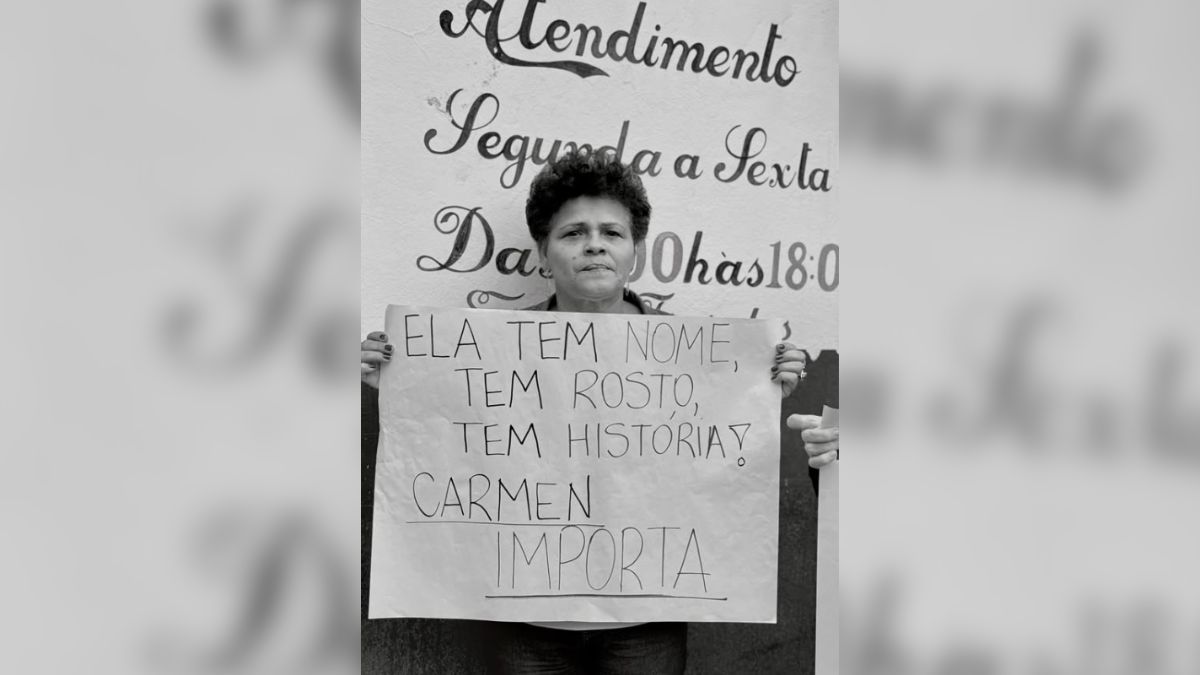 Atendimento
Segunda a Sexta
Das 00hàs18:0
ELA TEM NOME,
TEM ROSTO,
TEM HISTÓRIA!
CARMEN
IMPORTA